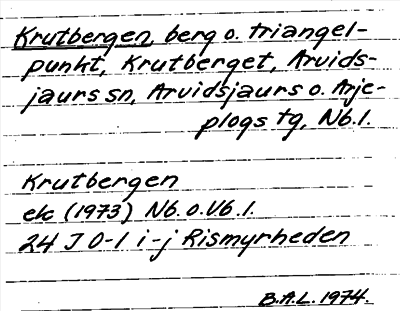 Krutbergen, berg o. triangel-
punkt, Krutberget, Arvids-
jaurs sn, Arvidsjaurs o. Arje-
plogs tg, Nb.l.
Krutbergen
ek (1973) Nb. o. Vb. l.
24 J 0-1 i-j Rismyrheden
B.A.L. 1974.